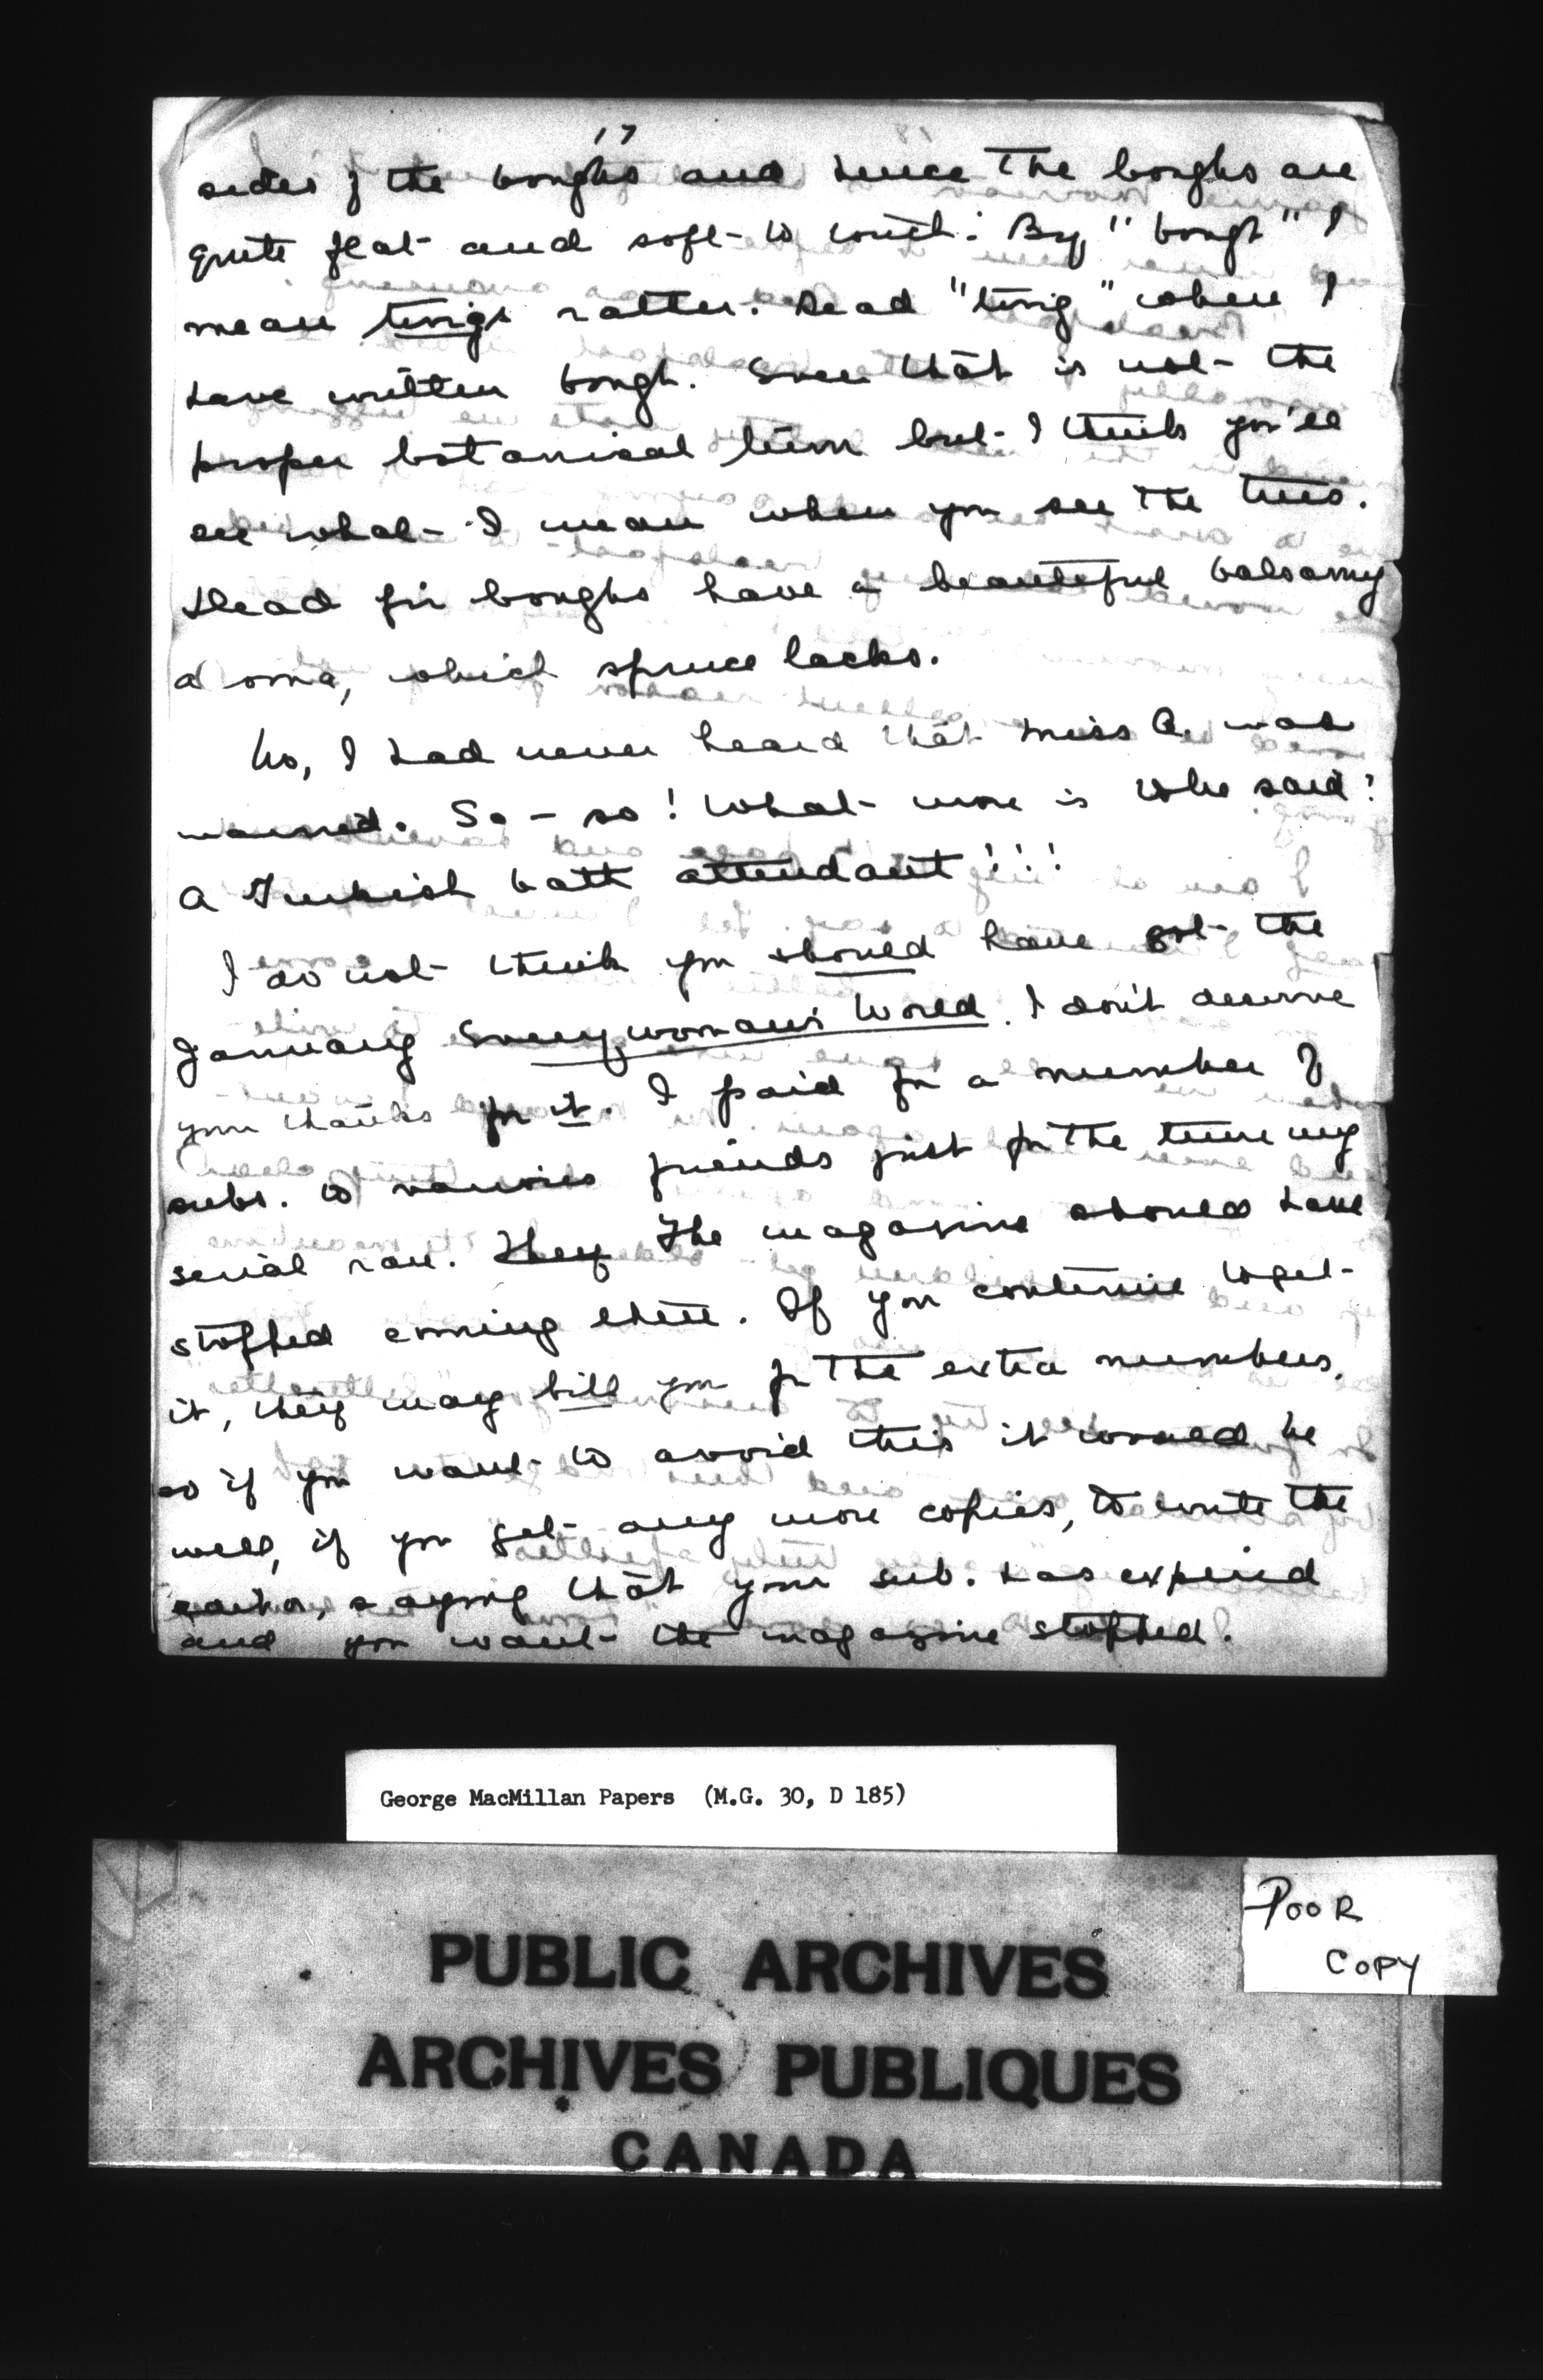 17
sides of the boughs and hence the boughs are
quite flat and soft to touch. By "bough" I
mean twigs rather. Read "twig" where I
have written bough. Even that is not the
proper botanical term but I think you'll
see what I mean when you see the trees.
Dead fir boughs have a beautiful balsamy
aroma, which spruce lacks.
No, I had never heard that Miss C. was
married. So - so! What more is who said?
A Turkish bath attendant!!!
I do not think you should have got the
January Everywoman's World. I don't deserve
your thanks for it. I paid for a number of
subs. to various friends just for the time my
serial ran. They The magazine should have
stopped coming then. If you continue to get
it, they may bill you for the extra numbers,
so if you want to avoid this it would be
well, if you get any more copies, to write the
editor, saying that your sub. has expired
and you want the magazine stopped.
George MacMillan Papers (M.G. 30, D 185)
POOR
COPY
PUBLIC ARCHIVES
ARCHIVES PUBLIQUES
CANADA